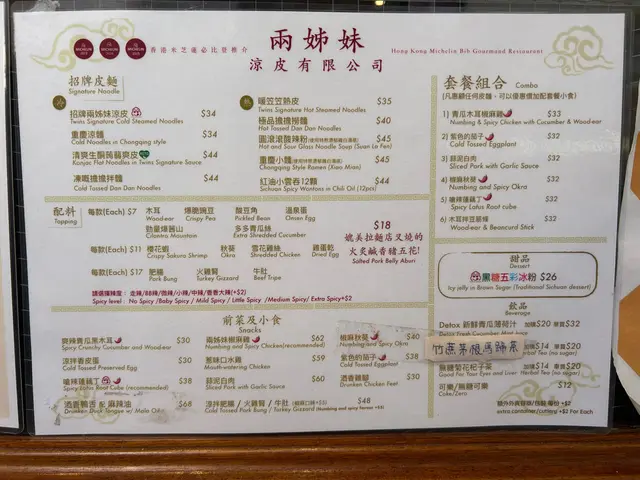 香港米芝蓮必比登推介
兩姊妹
涼皮有限公司
Hong Kong Michelin Bib Gourmand Restaurant
招牌皮麵
Signature Noodle
冷
招牌兩姊妹涼皮 $34
Twins Signature Cold Steamed Noodles
重慶涼麵 $34
Cold Tossed Noodles
清爽生酮蒟蒻爽皮 $44
Konjac Flat Noodles in Twins Signature Sauce
凍嘅擔擔拌麵 $44
Cold Tossed Dan Dan Noodles
熱
暖笠笠熟皮 $35
Twins Signature Hot Steamed Noodles
極品擔擔撈麵 $40
Hot Tossed Dan Dan Noodles
圓滾滾酸辣粉 $45
Hot and Sour Glass Noodle Soup (Suan La Fen)
重慶小麵 $45
Chongqing Style Ramen (Xiao Mian)
紅油小雲吞12顆 $44
Sichuan Spicy Wontons in Chili Oil (12pcs)
套餐組合 Combo
1) 青瓜木耳椒麻雞 $33
Numbing & Spicy Chicken with Cucumber & Wood-ear
2) 紫色的茄子 $32
Cold Tossed Eggplant
3) 蒜泥白肉 $32
Sliced Pork with Garlic Sauce
4) 椒麻秋葵 $32
Numbing and Spicy Okra
5) 嗆辣蓮藕丁 $32
Spicy Lotus Root cube
6) 木耳拌豆筋條 $32
Wood-ear & Beancurd Stick
配料
Topping
每款(Each) $7
木耳
Wood-ear
爆脆豌豆
Crispy Pea
酸豆角
Pickled String Bean
溫泉蛋
Onsen Egg
勁量爆芫茜
Cilantro Mountain
多多青瓜絲
Extra Shredded Cucumber
每款(Each) $11
櫻花蝦
Crispy Sakura Shrimp
秋葵
Okra
雪花雞絲
Shredded Chicken
雞蛋乾
Dried Egg
每款(Each) $17
肥腸
Pork Bung
火雞腎
Turkey Gizzard
牛肚
Beef Tripe
$18
媲美拉麵店又燒的
火炙鹹香豬五花!
Salted Pork Belly Aburi
Spicy level : No Spicy /Baby Spicy / Mild Spicy / Little Spicy /Medium Spicy/ Extra Spicy+$2
甜品
Dessert
黑糖五彩冰粉 $26
Icy jelly in Brown Sugar (Traditional Sichuan dessert)
前菜及小食
Snacks
爽辣青瓜黑木耳 $30
Spicy Crunchy Cucumber and Wood-ear
涼拌香皮蛋 $30
Cold Tossed Preserved Egg
嗆辣蓮藕丁 $38
Spicy Lotus Root Cube (recommended)
酒香鴨舌 配 麻辣油 $68
Drunken Duck Tongue w/ Mala Oil
兩姊妹椒麻雞 $62
Numbing and Spicy Chicken(recommended)
惹味口水雞 $59
Mouth-watering Chicken
蒜泥白肉 $60
Sliced Pork with Garlic Sauce
涼拌肥腸 / 火雞腎 / 牛肚 $48
Cold Tossed Pork Bung / Turkey Gizzard
椒麻秋葵 $40
Numbing and Spicy Okra
紫色的茄子 $38
Cold Tossed Eggplant
酒香雞腳 $30
Drunken Chicken Feet
飲品
Beverage
Detox 新鮮青瓜薄荷汁 加購$20 單買$32
Detox Fresh Cucumber Mint Juice
竹蔗茅根馬蹄茶
加購$14 單買$20
Herbal Tea (no sugar)
無糖菊花杞子茶 加購$14 單買$20
Good For Your Eyes and Liver Herbal Tea (no sugar)
可樂/無糖可樂 $12
Coke/Zero
extra container/cutlery +$2 For Each